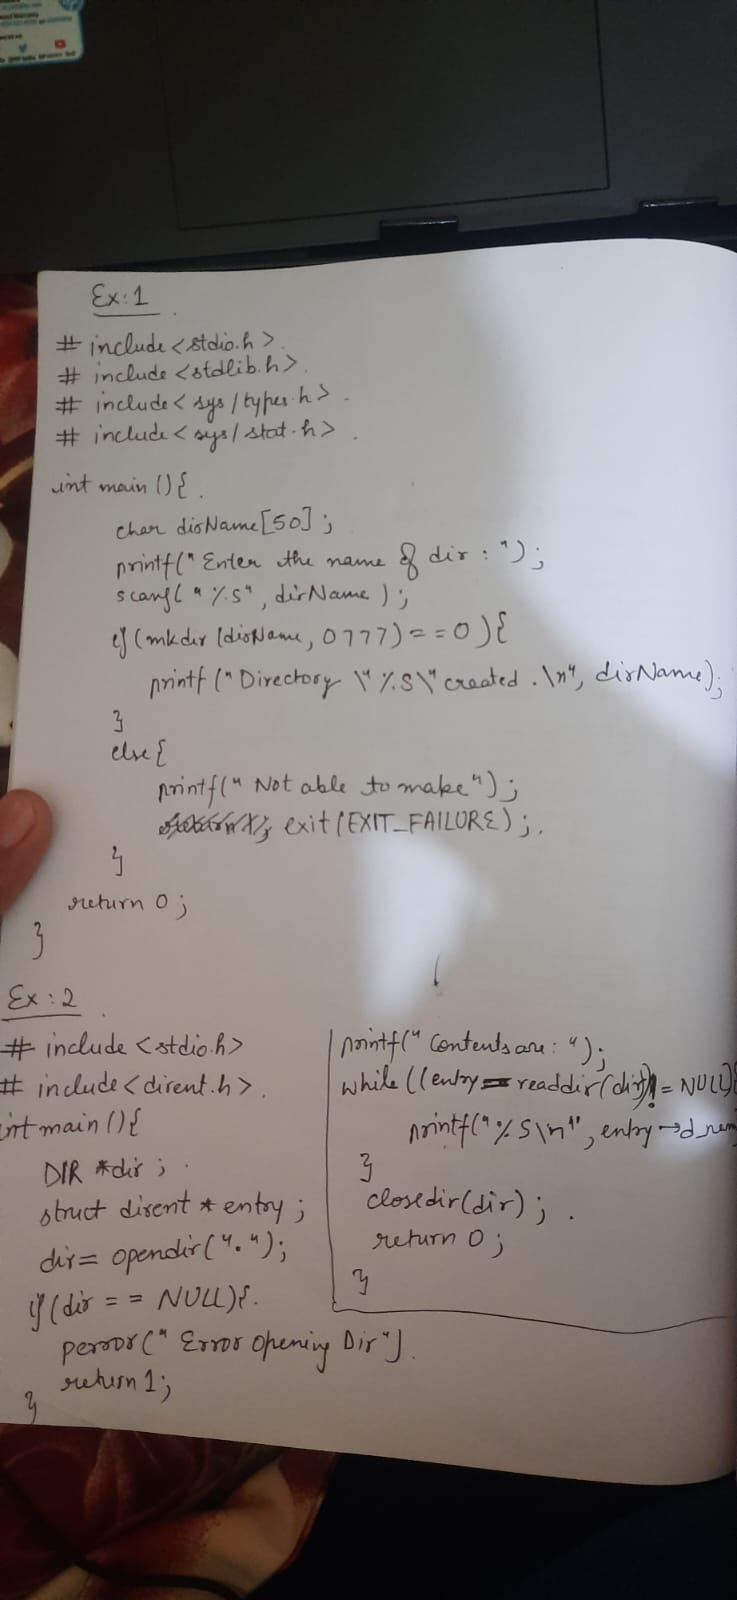 Ex: 1
# include <stdio.h>
# include <stdlib.h>
# include < sys / types.h>
# include < sys / stat.h>
int main () {
char dirName [50] ;
printf(" Enter the name of dir : ");
scanf( "%s", dirName );
if (mkdir (dirName, 0777) == 0 ) {
printf (" Directory \"%s\" created .\n", dirName);
}
else {
printf(" Not able to make");
exit (EXIT_FAILURE) ;
}
return 0 ;
}
Ex : 2
# include <stdio.h>
# include <dirent.h>
int main () {
DIR *dir ;
struct dirent * entry ;
dir = opendir(".");
if (dir == NULL) {
perror (" Error opening Dir")
return 1;
}
printf(" Contents are : ");
while ((entry = readdir(dir)) != NULL) {
printf("%s\n", entry →
}
closedir(dir) ;
return 0 ;
}